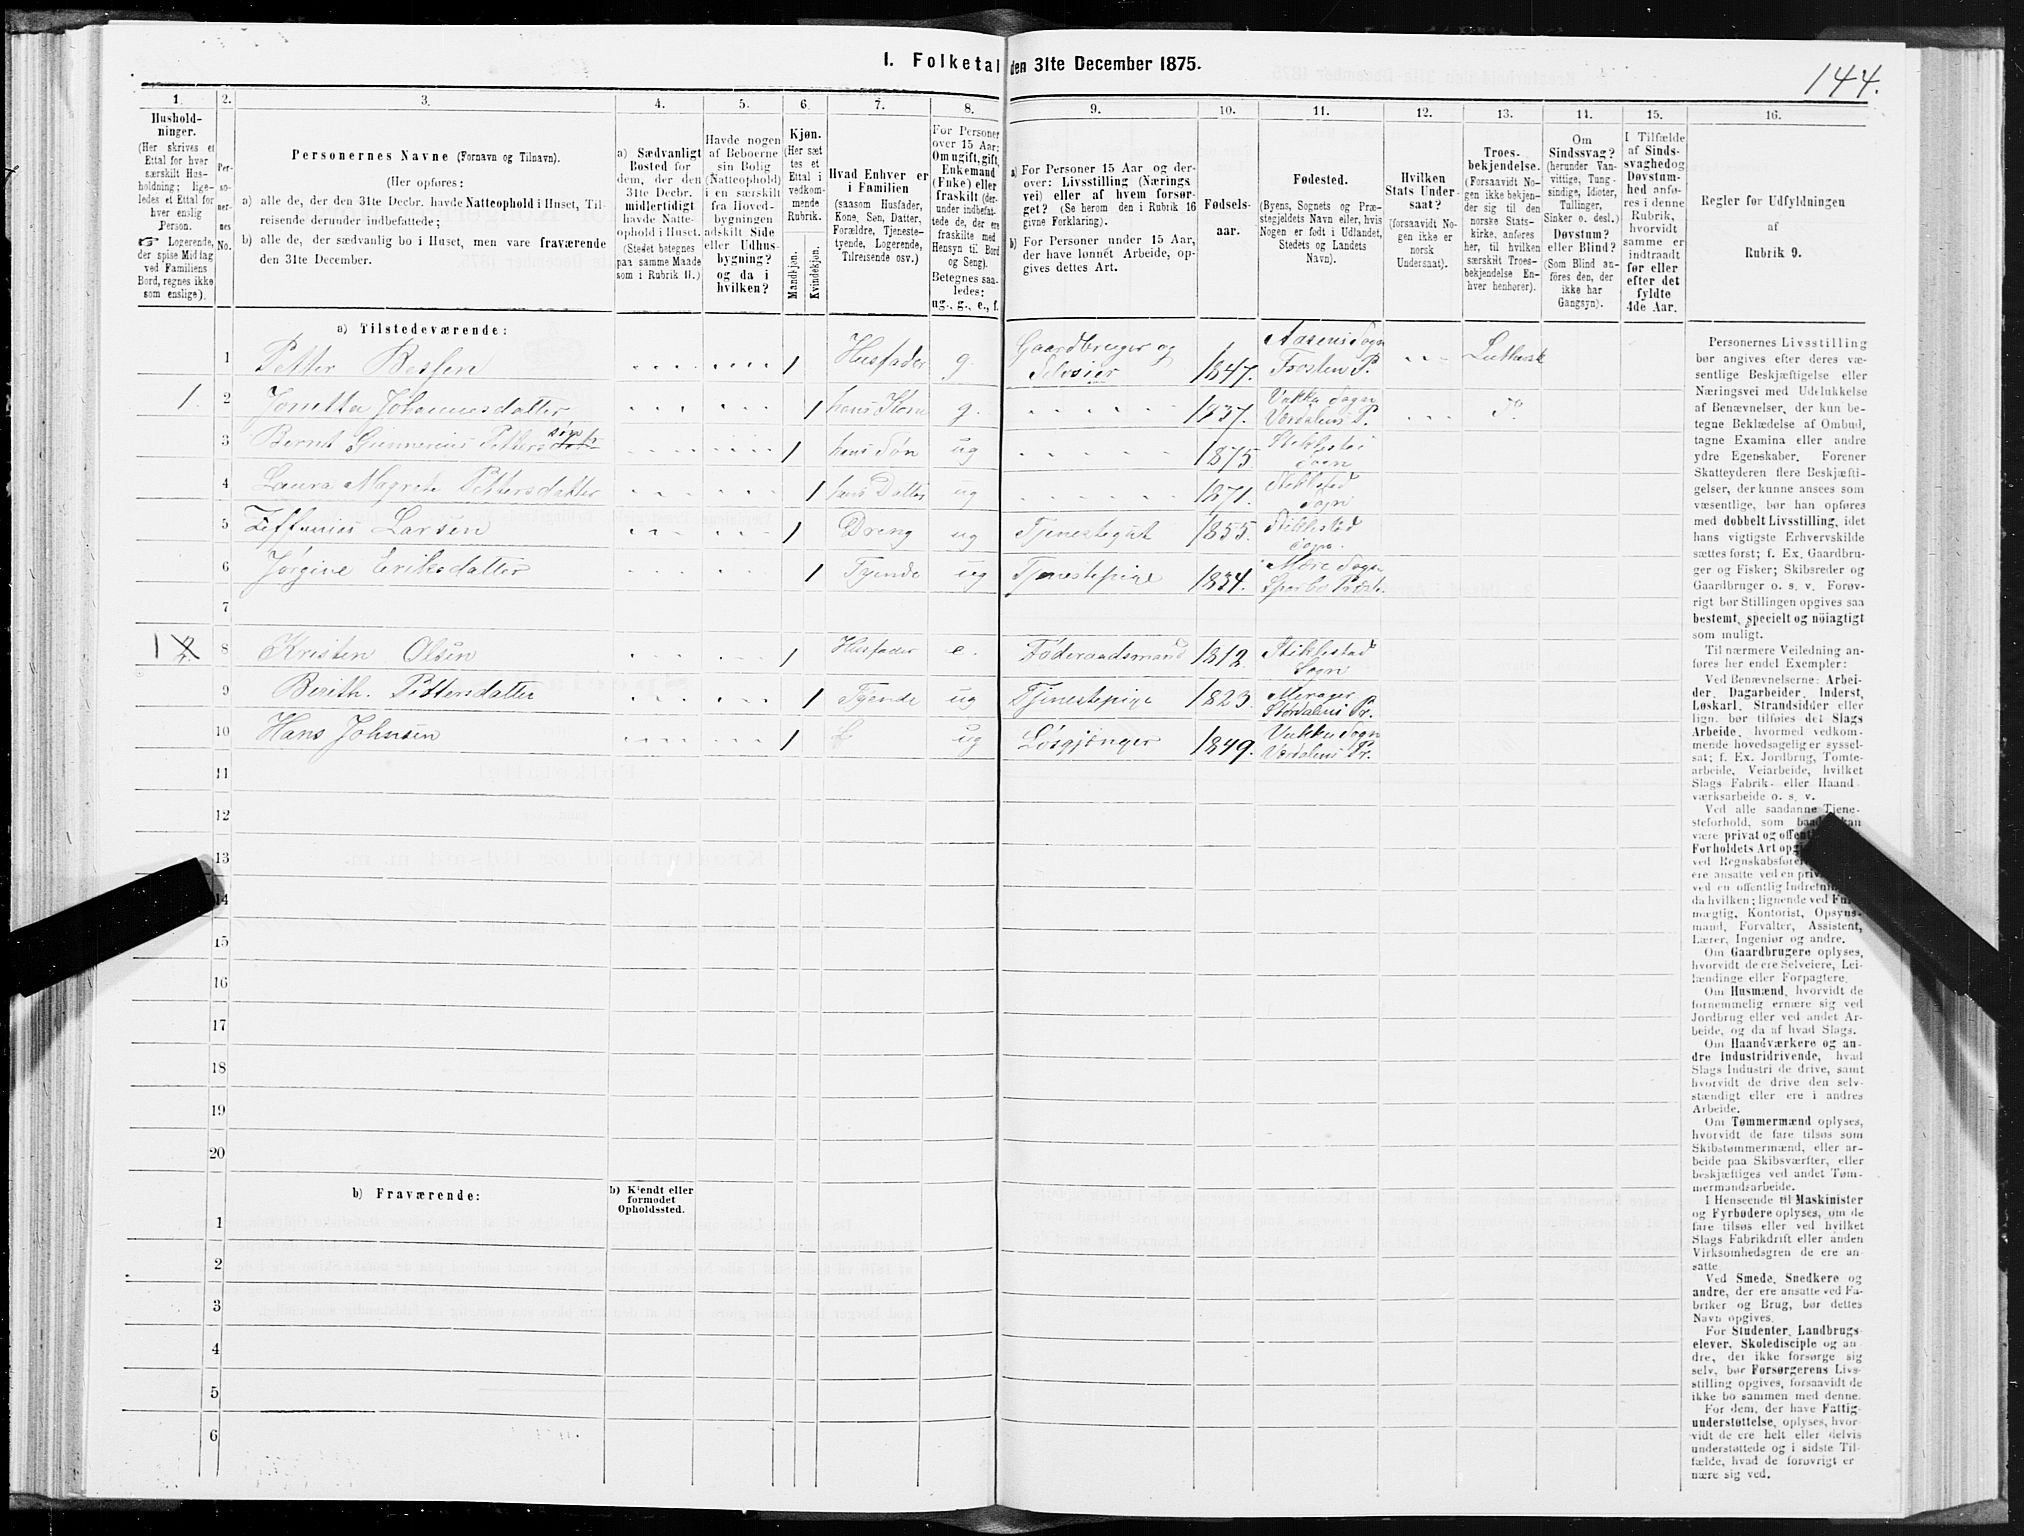 I. Folketal den 31te December 1875.
144.
1. 2. 3. 4. 5. 6. 7. 8. 9. 10. 11. 12. 13. 14. 15. 16.
Hushold-
ninger.
(Her skrives et
Ettal for hver
særskilt Hus-
holdning; lige-
ledes et Ettal for
hver enslig
Person.
☞ Logerende,
der spise Middag
ved Familiens
Bord, regnes ikke
som enslige).
Per-
so-
ner-
nes
No.
Personernes Navne (Fornavn og Tilnavn).
(Her opføres:
a) alle de, der den 31te Decbr. havde Natteophold i Huset, Til-
reisende derunder indbefattede;
b) alle de, der sædvanlig bo i Huset, men vare fraværende
den 31te December.
a) Sædvanligt
Bosted for
dem, der den
31te Decbr.
midlertidigt
havde Natte-
ophold i Huset.
(Stedet betegnes
paa samme Maade
som i Rubrik 11.)
Havde nogen
af Beboerne
sin Bolig
(Natteophold)
i en særskilt
fra Hoved-
bygningen
adskilt Side
eller Udhus-
bygning?
og da i
hvilken?
Kjøn.
(Her sæt
tes et
Ettal i
vedkom-
mende
Rubrik.
Mandkjøn.
Kvindekjøn.
Hvad Enhver er
i Familien
(saasom Husfader,
Kone, Søn, Datter,
Forældre, Tjeneste-
tyende, Logerende,
Tilreisende osv.)
For Personer
over 15 Aar:
Om ugift, gift,
Enkemand
(Enke) eller
fraskilt (der-
under indbefat-
tede de, der ere
fraskilte med
Hensyn til Bord
og Seng).
Betegnes saa-
ledes:
ug., g., e., f.
a) For Personer 15 Aar og der-
over: Livsstilling (Nærings
vei) eller af hvem forsør-
get? (Se herom den i Rubrik 16
givne Forklaring).
b) For Personer under 15 Aar,
der have lønnet Arbeide, op-
gives dettes Art.
Fødsels-
aar.
Fødested.
(Byens, Sognets og Præ-
stegjeldets Navn eller, hvis
Nogen er født i Udlandet,
Stedets og Landets
Navn).
Hvilken
Stats Under-
saat?
(forsaavidt No-
gen ikke er
norsk
Undersaat).
Troes-
bekjendelse.
(Forsaavidt No-
gen ikke bekjen-
der sig til den
norske Stats-
kirke, anføres
her, til hvilken
særskilt Troes-
bekjendelse En-
hver henhører).
Om
Sindssvag?
(herunder Van-
vittige, Tung-
sindige, Idioter,
Tullinger,
Sinker o. desl.)
Døvstum?
eller Blind?
(Som Blind an-
føres den, der
ikke har
Gangsyn).
I Tilfælde
af Sinds-
svaghed og
Døvstum-
hed anfø-
res i denne
Rubrik,
hvorvidt
samme er
indtraadt
før eller
efter det
fyldte
4de Aar.
Regler for Udfyldningen
af
Rubrik 9.
a) Tilstedeværende:
1 Petter Besfen 1 Husfader g. Gaardbruger og Selveier 1847. Aasens Sogn Frosten P. Luthersk
1. 2 Johannesdatter 1 hans Kone g. 1837. Vukku Sogn Værdalens P. Do.
3 Bernt Gunnerius Pettersdatr søn 1 hans Søn ug 1875 Stiklestad Sogn
4 Laura Magrete Pettersdatter 1 hans Datter ug 1871. Stiklestad Sogn
5 Larsen 1 Dreng ug Tjenestegut 1855. Stiklestad Sogn.
6 Jørgine Eriksdatter 1 Tyende ug Tjenestepige 1834. Mære Sogn Sparbo Præste.
7
1 2. 8 Kristen Olsen 1 Husfader e. Føderaadsmand 1812. Stiklestad Sogn
9 Berith. Pettersdatter 1 Tyende ug Tjenestepige 1823. Merager Størdalens Pr.
10 Hans Johnsen 1 f ug Løsgjænger 1849. Vukku Sogn Værdalens Pr.
11
12
13
14
15
16
17
18
19
20
b) Fraværende:
b) Kjendt eller
formodet
Opholdssted.
1
2
3
4
5
6
Personernes Livsstilling
bør angives efter deres væ-
sentlige Beskjæftigelse eller
Næringsvei med Udelukkelse
af Benævnelser, der kun be-
tegne Beklædelse af Ombud,
tagne Examina eller andre
ydre Egenskaber. Forener
Skatteyderen flere Beskjæfti-
gelser, der kunne ansees som
væsentlige, bør han opføres
med dobbelt Livsstilling, idet
hans vigtigste Erhvervskilde
sættes først; f. Ex. Gaardbru-
ger og Fisker; Skibsreder og
Gaardbruger o. s. v. Forøv-
rigt bør Stillingen opgives saa
bestemt, specielt og nøiagtigt
som muligt.
Til nærmere Veiledning an-
føres her endel Exempler:
Ved Benævnelserne: Arbei-
der, Dagarbeider, Inderst,
Løskarl, Strandsidder eller
lign. bør tilføies det Slags
Arbeide, hvormed vedkom-
mende hovedsagelig er syssel-
sat; f. Ex. Jordbrug, Tomte-
arbeide, Veiarbeide, hvilket
Slags Fabrik- eller Haand
værksarbeide o. s. v.
Ved alle saadanne Tjene-
steforhold, som baade kan
være privat og offentl
Forholdets Art opgi
ved Regnskabsføre
ere ansatte ved en priv
ved en offentlig Indretnin
da hvilken; lignende ved Ful
mægtig, Kontorist, Opsyns-
mand, Forvalter, Assistent,
Lærer, Ingeniør og andre.
Om Gaardbrugere oplyses,
hvorvidt de ere Selveiere, Lei-
lændinge eller Forpagtere.
Om Husmænd, hvorvidt de
fornemmelig ernære sig ved
Jordbrug eller ved andet Ar-
beide, og da af hvad Slags.
Om Haandværkere og an-
dre Industridrivende, hvad
Slags Industri de drive, samt
hvorvidt de drive den selv-
stændigt eller ere i andres
Arbeide.
Om Tømmermænd oplyses,
hvorvidt de fare tilsøs som
Skibstømmermænd, eller ar-
beide paa Skibsværfter, eller
beskjæftiges ved andet Tøm-
mermandsarbeide.
I Henseende til Maskinister
og Fyrbødere oplyses, om de
fare tilsøs eller ved hvilket
Slags Fabrikdrift eller anden
Virksomhedsgren de ere an-
satte
Ved Smede, Snedkere og
andre, der ere ansatte ved Fa-
briker og Brug, bør dettes
Navn opgives.
For Studenter, Landbrugs-
elever, Skoledisciple og an-
dre, der ikke forsørge sig
selv, bør Forsørgerens Livs-
stilling opgives, forsaavidt de
ikke bo sammen med denne.
For dem, der have Fattig-
understøttelse, oplyses, hvor-
vidt de ere helt eller delvis
understøttede og i sidste Til-
fælde, hvad de forøvrigt er
nære sig ved.